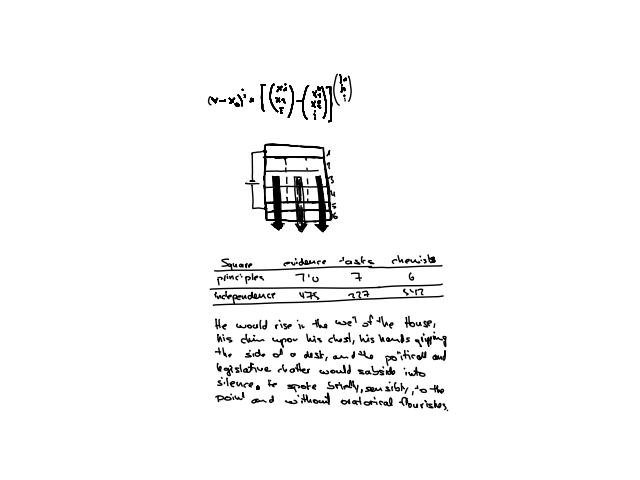 1
2
3
4
5
6
Square evidence tasks chemists
principles 710 7 6
independence 475 227 542
He would rise in the well of the House,
his chin upon his chest, his hands gripping
the side of a desk, and the political and
legislative chatter would subside into
silence. He spoke briefly, sensibly, to the
point and without oratorical flourishes.